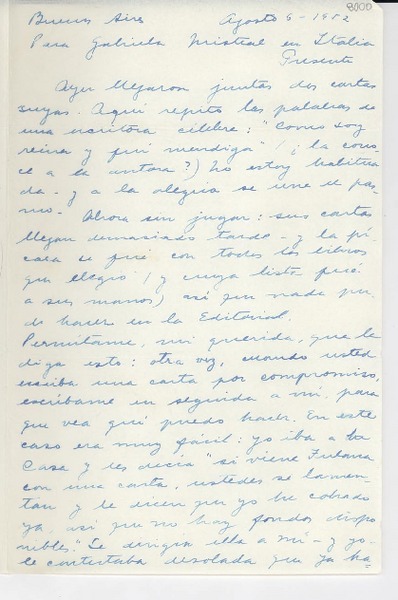 8000
Buenos Aires Agosto 6 - 1952
Para Gabriela Mistral en Italia
Presente
Ayer llegaron juntas dos cartas
suyas. Aquí repito las palabras de
una escritora célebre: "Como soy
reina y fui mendiga" (¿la cono-
ce a la autora?) no estoy habitua
da - y a la alegría se une el pas-
mo. Ahora sin jugar: sus cartas
llegan demasiado tarde - y la pí-
cara se fué con todos los libros
que eligió (y cuya lista
a sus manos) así que nada pu-
do hacer en la Editorial.
Permítame, mi querida, que le
diga esto: otra vez, cuando usted
escriba una carta por compromiso,
escríbame en seguida a mí, para
que vea qué puedo hacer. En este
caso era muy fácil: yo iba a la
Casa y les decía "si viene Fulana
con una carta, ustedes se lamen-
tan y le dicen que yo he cobrado
ya, así que no hay fondos dispo
nibles." Se dirigía ella a mí - y yo
le contestaba desolada que ya ha-